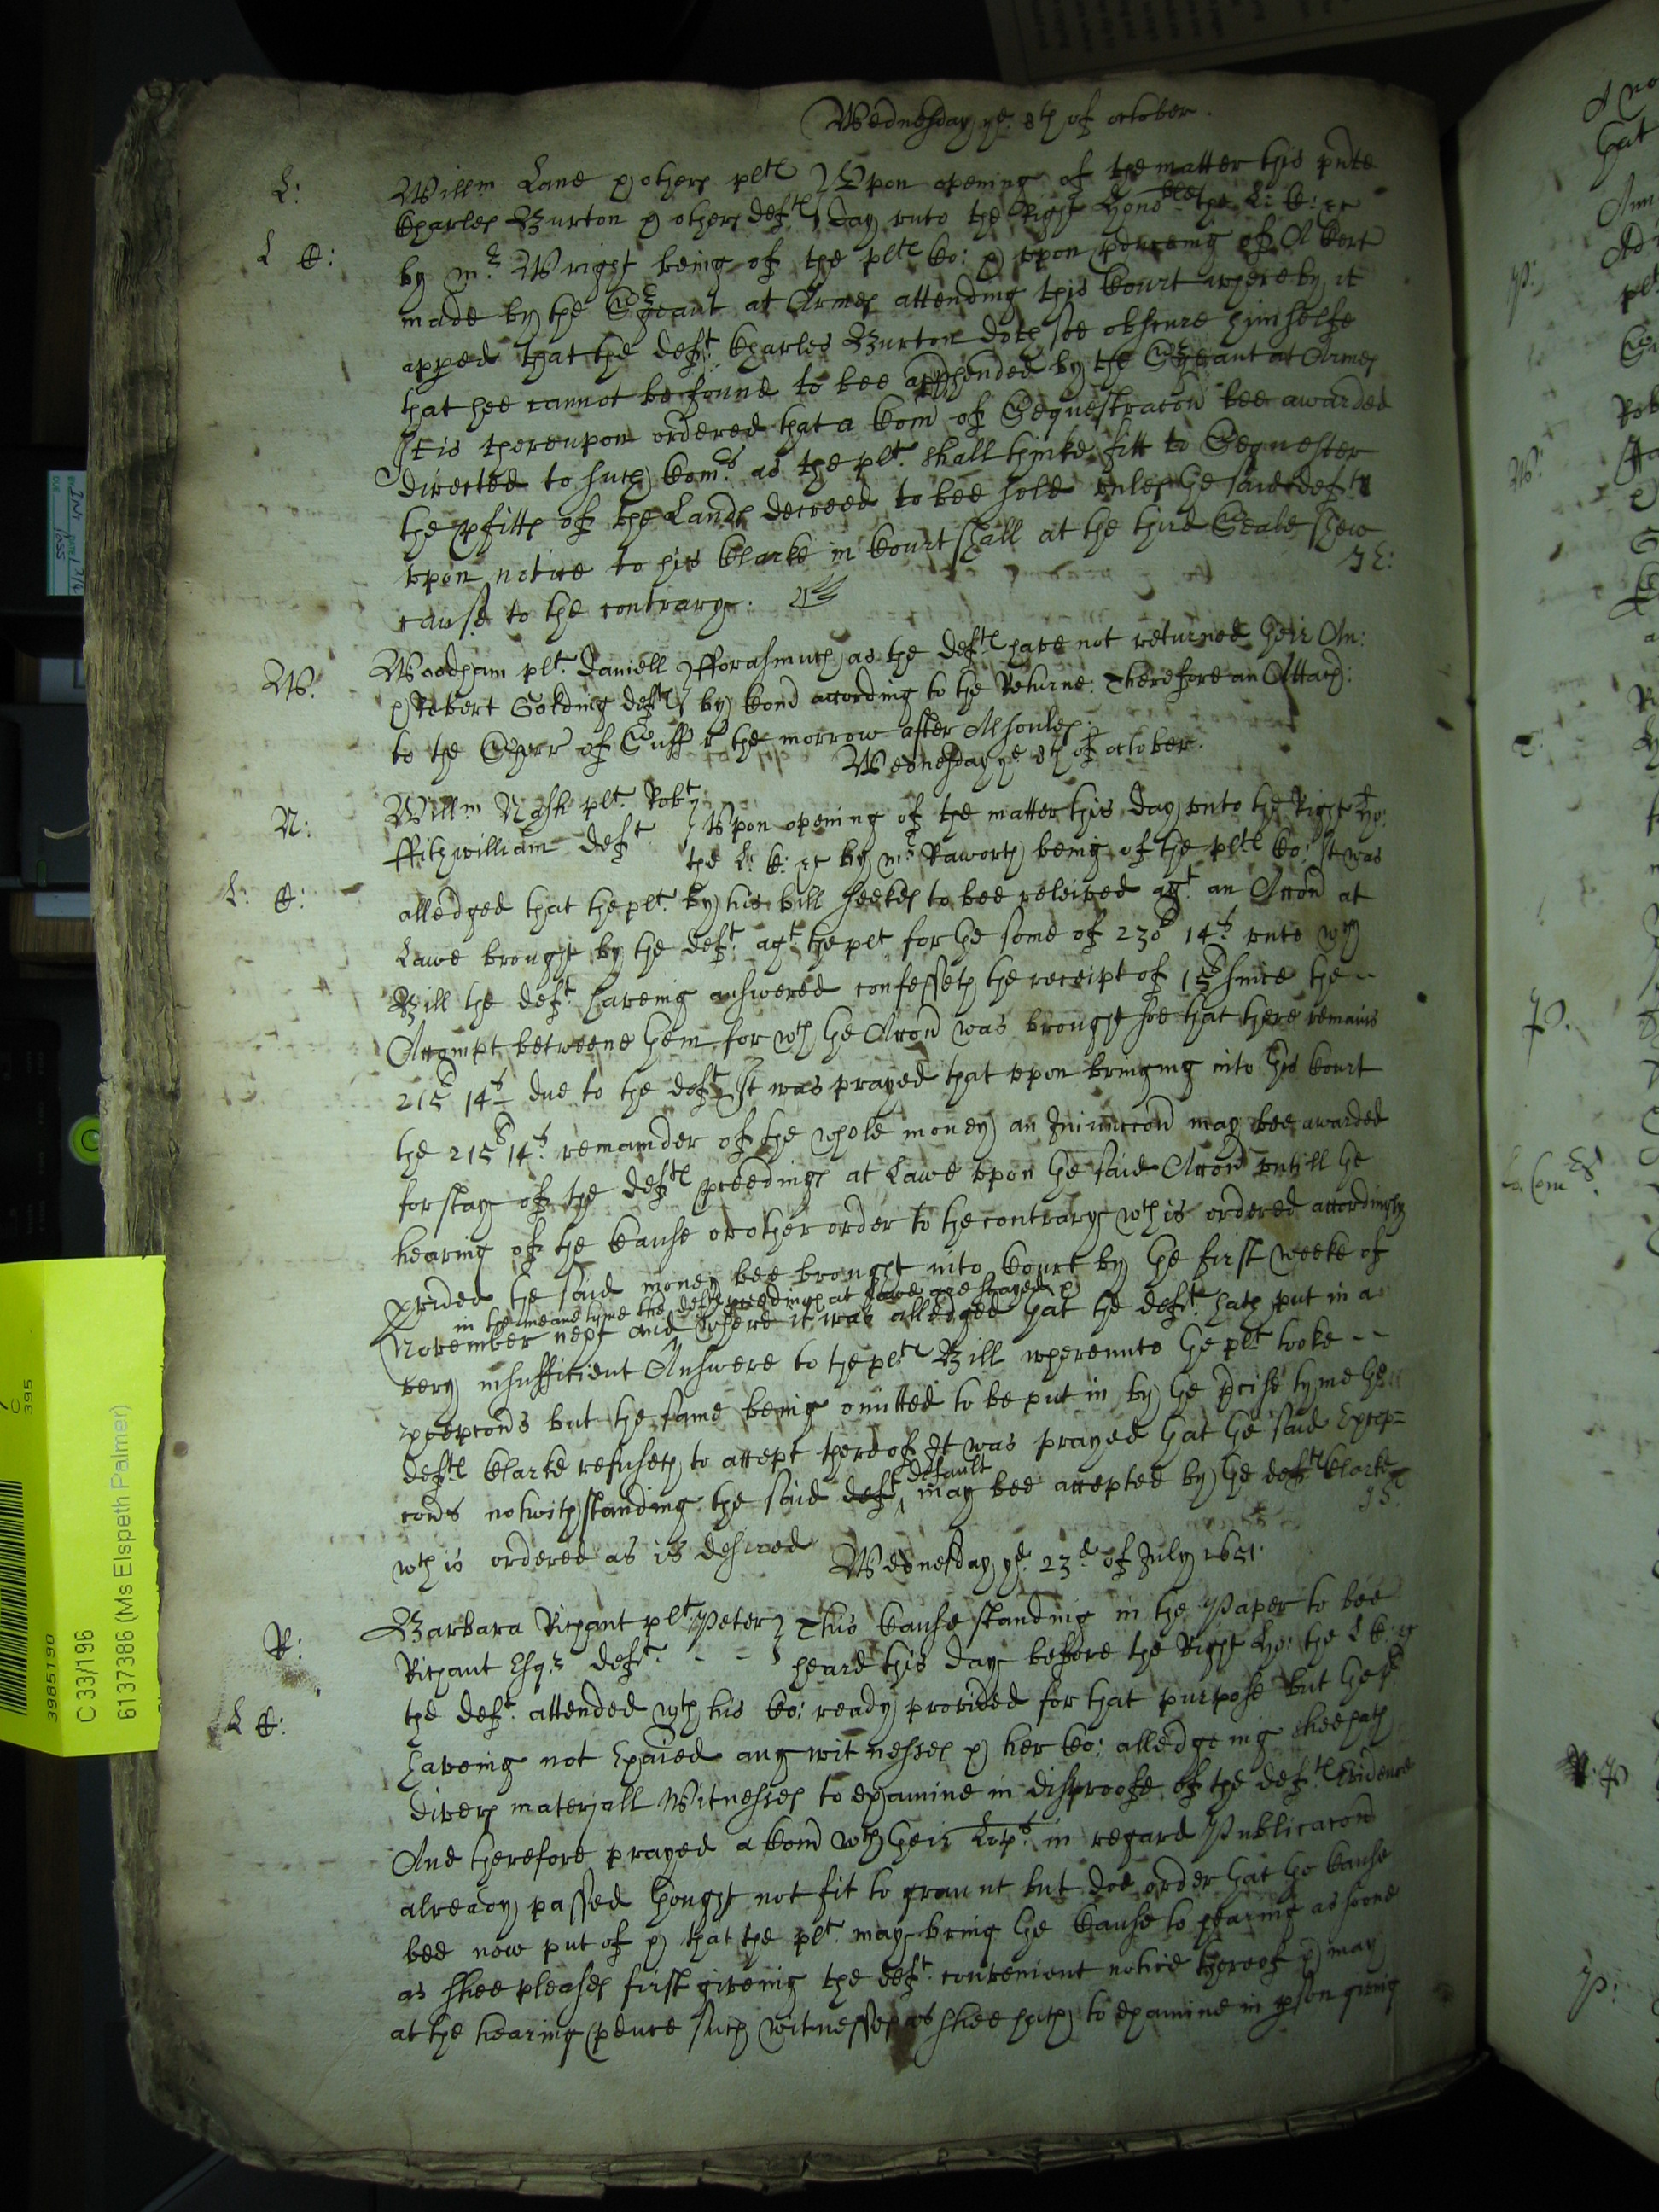 Wednesday ye. 8th of october.
L: Willm Lane & others plts Upon opening of the matter this pnte
Charles Burton & others defts day unto the Right Honoble the L: C: &c
L C: by mr. Wright being of the plts Co: & upon pduceing of A Cert
made by the Sergeant at Armes attending this Court whereby it
apped that the deft. Charles Burton doth soe obscure himselfe
that hee cannot be found to bee apphended by the Sergeant at Armes
It is thereupon ordered that a Com of Sequestracon bee awarded
directed to such Comrs. as the plt. shall thinke fitt to Sequester
the pfitts of the Lands decreed to bee sold unles the said defts
upon notice to his Clarke in Court shall at the third Seale shew
cause to the contrary.
W. Woodham plt. Daniell fforasmuch as the defts have not returned their An:
& Robert Golding defts by Comd according to the Returne. Therefore an Attach:
to the Sherr of Suff r the morrow after Alsoules.
Wednesday ye 8th of october.
N: Willm Nash plt. Robt
ffitzwilliam deft. Upon opening of the matter this day unto the Right Ho:
the L: C: &c by mr. Raworth being of the plts Co: It was
L: C: alledged that the plt. by his bill seekes to bee releived agt. an Accon at
Lawe brought by the deft. agt. the plt for the some of 230l 14s. unto wch
Bill the deft. haveing answered confesseth the receipt of 15l since the
Accompt betweene them for wch the Accon was brought soe that there remains
215l 14s due to the deft It was prayed that upon bringing into this Court
the 215l 14s. remainder of the whole money an Iniunccon may bee awarded
for stay of the defts pceedings at Lawe upon the said Accon untill the
hearing of the Cause or other order to the contrary wch is ordered accordingly
pvided the said money bee brought into Court by the first weeke of
in the meane tyme the defts pceedings at Lawe are stayed &
November next and where it was alledged that the deft. hath put in a
very insufficient Answere to the plts Bill whereunto the plt. tooke
Excepcons but the same being omitted to be put in by the pcise tyme the
defts Clarke refuseth to accept thereof It was prayed that the said Excep=
default
cons notwithstanding the said deft may bee accepted by the defts Clarke
wch is ordered as is desired
Wednesday ye. 23d of July 1651.
R: Barbara Richant plt. Peter This Cause standing in the Paper to bee
Richant Esqr. deft. heard this day before the Right Ho: the L C: &c
L C: the deft. attended wth his Co: ready provided for that purpose But the plt
haveing not Exaied any witnesses & her Co: alledgeing shee hath
divers materjall Witnesses to examine in disproofe of the defts Evidence
And therefore prayed a Comd wch their Lopps. in regard Publicacon
already passed thought not fit to graunt but doe order that the Cause
bee now put of & that the plt. may bring the Cause to hearing as soone
as shee pleases first giveing the deft. convenient notice thereof & may
at the hearing pduce such witnesses as shee hath to examine in pson giveing
3985190
C 33/196
6137386 (Ms Elspeth Palmer)